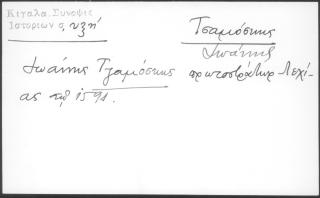 Κιγαλα. Σύνοψις
Ιστοριων σ. υξή
Τσαμόσκης
Ιωάννης
Ιωάννης Τζαμόσκης πρωτοστράτωρ Λεχί-
ας τῷ 1591.